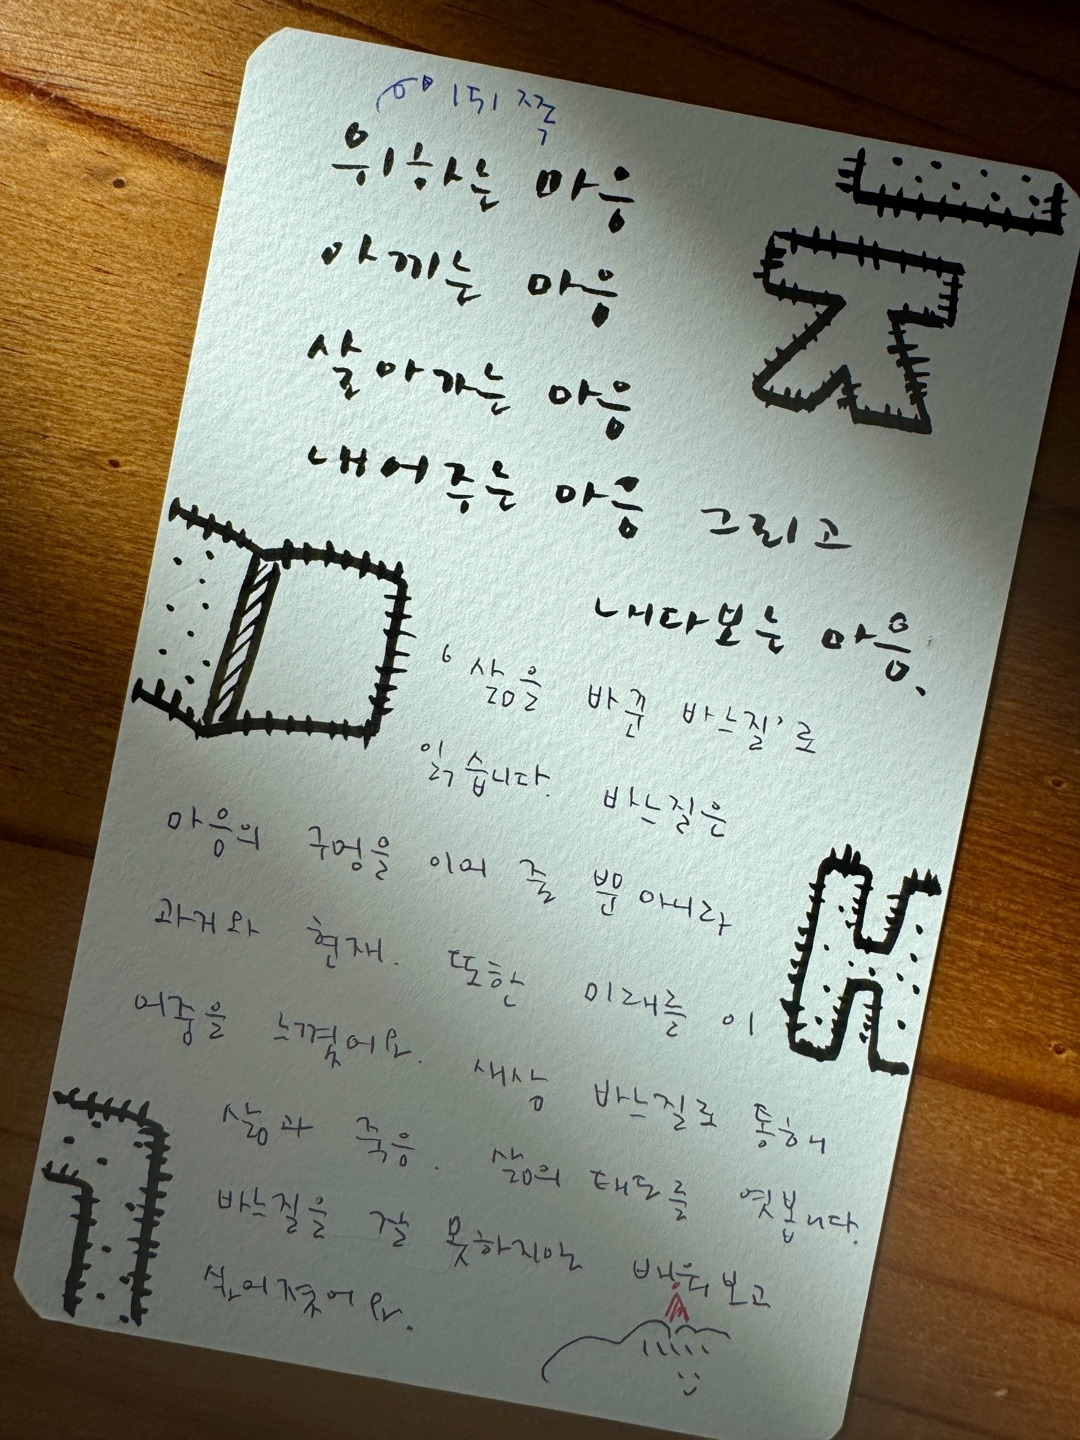 뒤쪽
위하는 마음
아끼는 마음
살아가는 마음
내어주는 마음 그리고
내다보는 마음.
'삶을 바꾼 바느질'로
읽습니다. 바느질은
마음의 구멍을 이어 줄 뿐 아니라
과거와 현재. 또한 미래를 이
어줌을 느꼈어요. 새삼 바느질로 통해
삶과 죽음. 삶의 태도를 엿봅니다.
바느질을 잘 못하지만 배워보고
싶어졌어요.